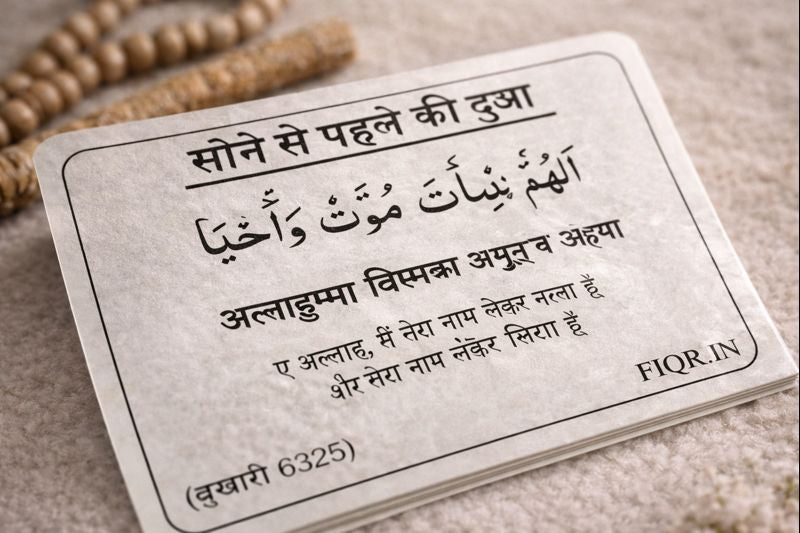 सोने से पहले की दुआ
اَلهُمَّ نِبِسأَتَ مُوَّتْ وَأَخْيَا
अल्लाहुम्मा विस्मिका अमुत् व अहया
ए अल्लाह, मैं तेरा नाम लेकर मरता हूँ
और सेरा नाम लेकर
हूँ
FIQR.IN
(बुखारी 6325)